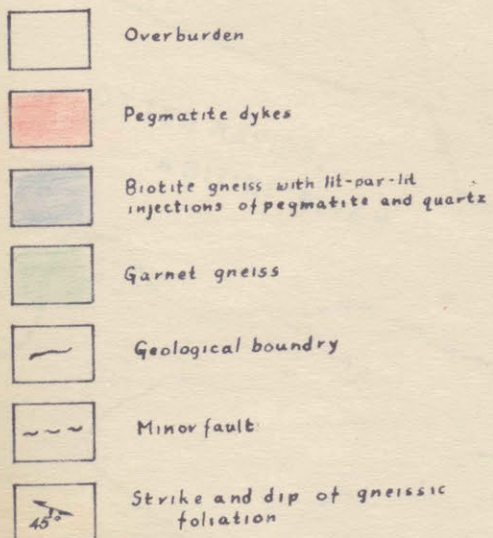 Overburden
Pegmatite dykes
Biotite gneiss with lit-par-lit
injections of pegmatite and quartz
Garnet gneiss
Geological boundry
Minor fault
45°
Strike and dip of gneissic
foliation